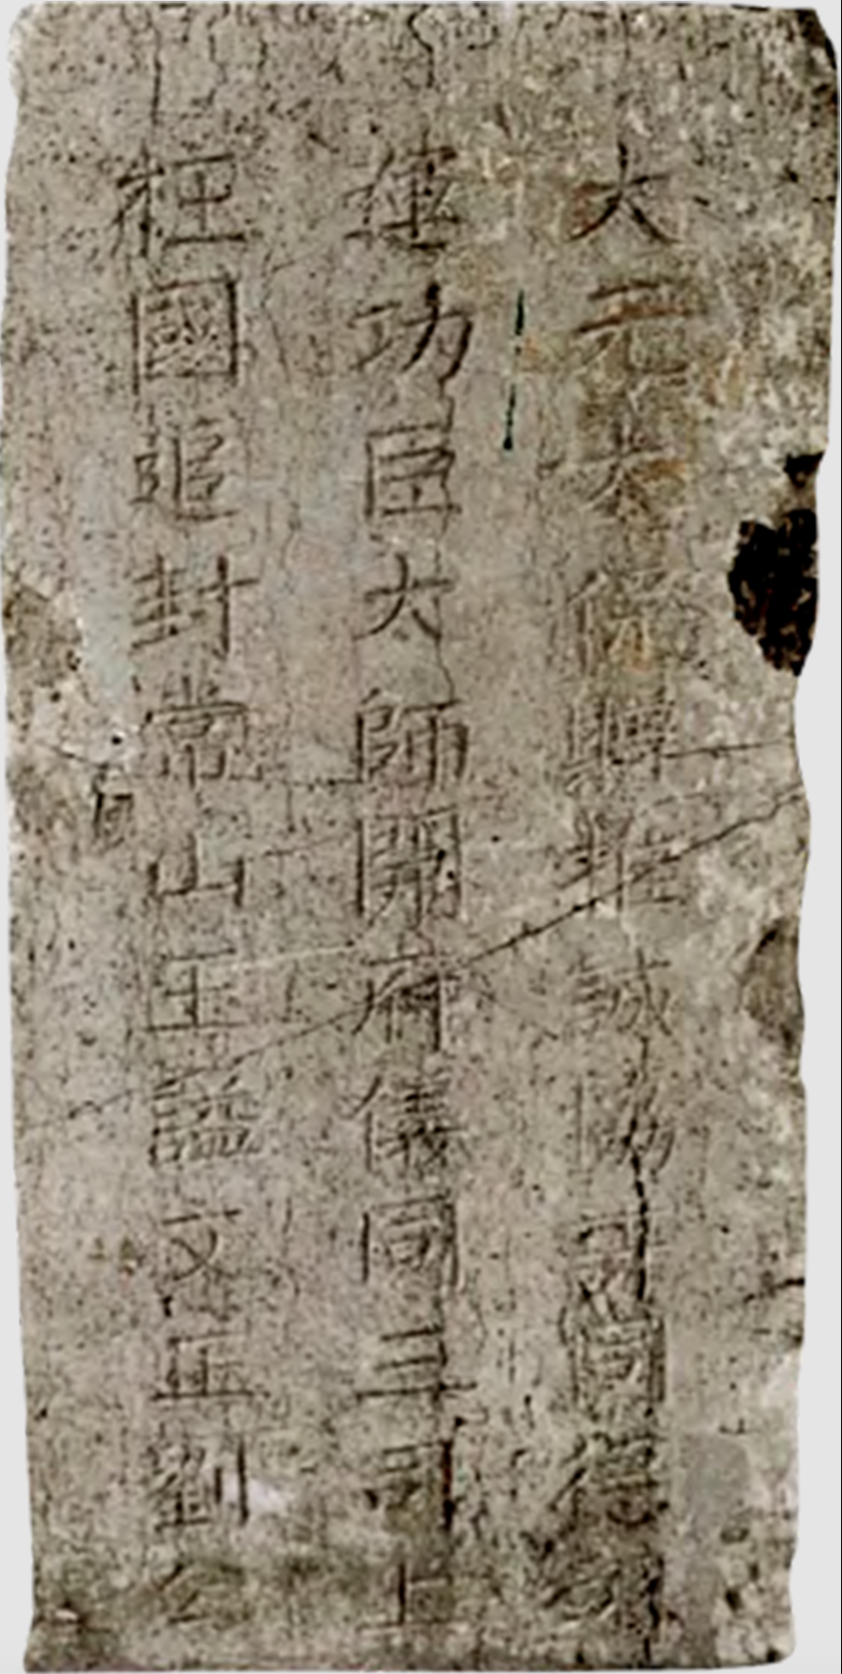 大元太保贈推誠協謀同德
運功臣太師開府儀同三司上
柱國追封常山王謚文正劉公